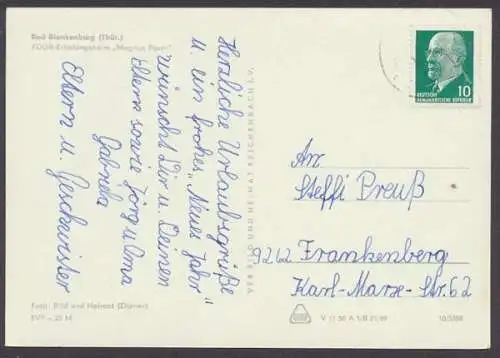 Bad Blankenburg (Thür.)
FDGB-Erholungsheim „Magnus Poser"
Herzliche Urlaubsgrüße
u. ein frohes „Neues Jahr"
wünscht Dir u. Deinen
Eltern sowie Jörg u. Oma
Gabriela
Eltern u. Geschwister
VEB BILD UND HEIMAT REICHENBACH I.V.
10
DEUTSCHE
DEMOKRATISCHE REPUBLIK
An
Steffi Preuß
9262 Frankenberg
Karl-Marx-Str. 62
Foto: Bild und Heimat (Dörner)
EVP –.20 M
V 11 50 A 1/B 21/69